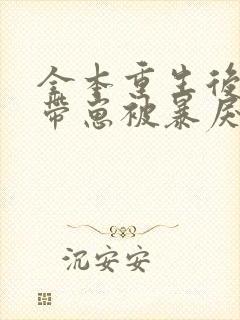 全本重生後
帶崽被暴戾
沉安安